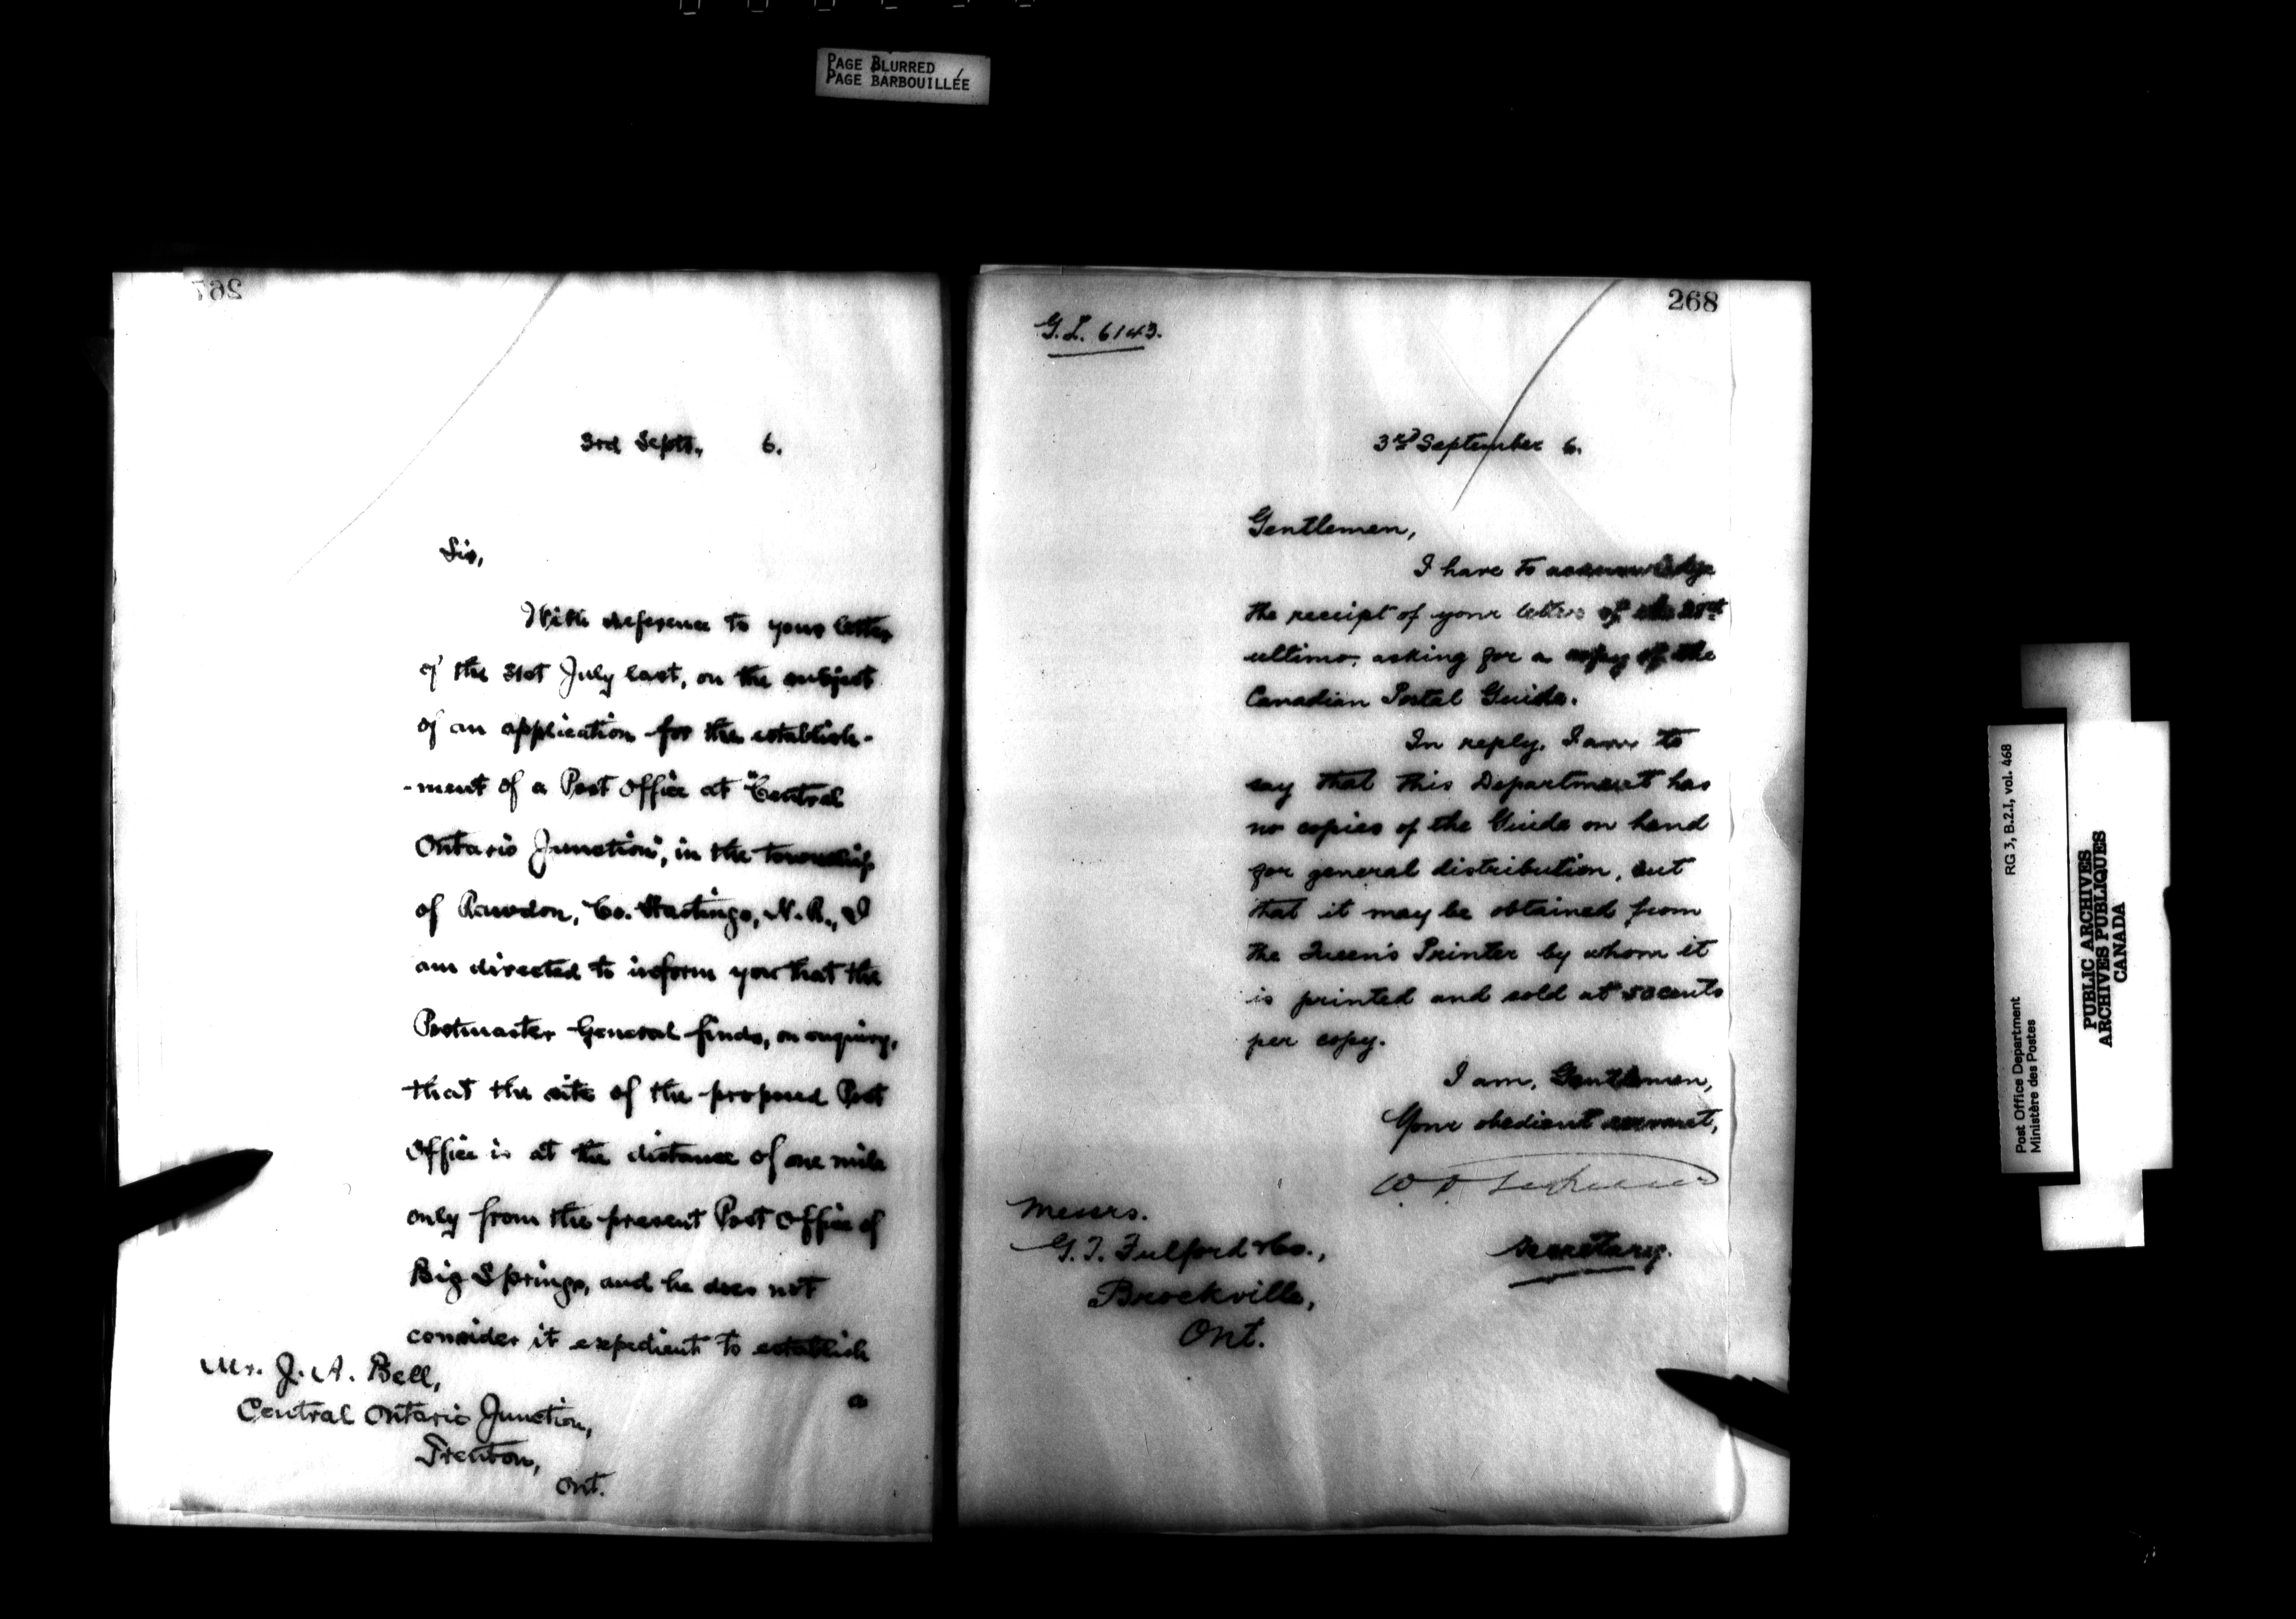 PAGE BLURRED
PAGE BARBOUILLÉE
267
3rd Septr. 6.
Sir,
With reference to your letter
of the 31st July last, on the subject
of an application for the establish-
-ment of a Post Office at "Central
Ontario Junction", in the township
of Rawdon, Co. Hastings, N.R., I
am directed to inform you that the
Postmaster General finds, on enquiry,
that the site of the proposed Post
Office is at the distance of one mile
only from the present Post Office of
Big Springs, and he does not
consider it expedient to establish
a
Mr. J. A. Bell,
Central Ontario Junction,
Trenton,
Ont.
268
G.I. 6143.
3rd September 6.
Gentlemen,
I have to acknowledge
the receipt of your letter of the
ultimo, asking for a copy of the
Canadian Postal Guide.
In reply, I am to
say that this Department has
no copies of the Guide on hand
for general distribution, but
that it may be obtained from
the Queen's Printer by whom it
is printed and sold at 50 cents
per copy.
I am, Gentlemen,
Your obedient servant,
Secretary.
Messrs.
G. T. Fulford & Co.,
Brockville,
Ont.
Post Office Department RG 3, B.2.I, vol. 468
Ministère des Postes
PUBLIC ARCHIVES
ARCHIVES PUBLIQUES
CANADA